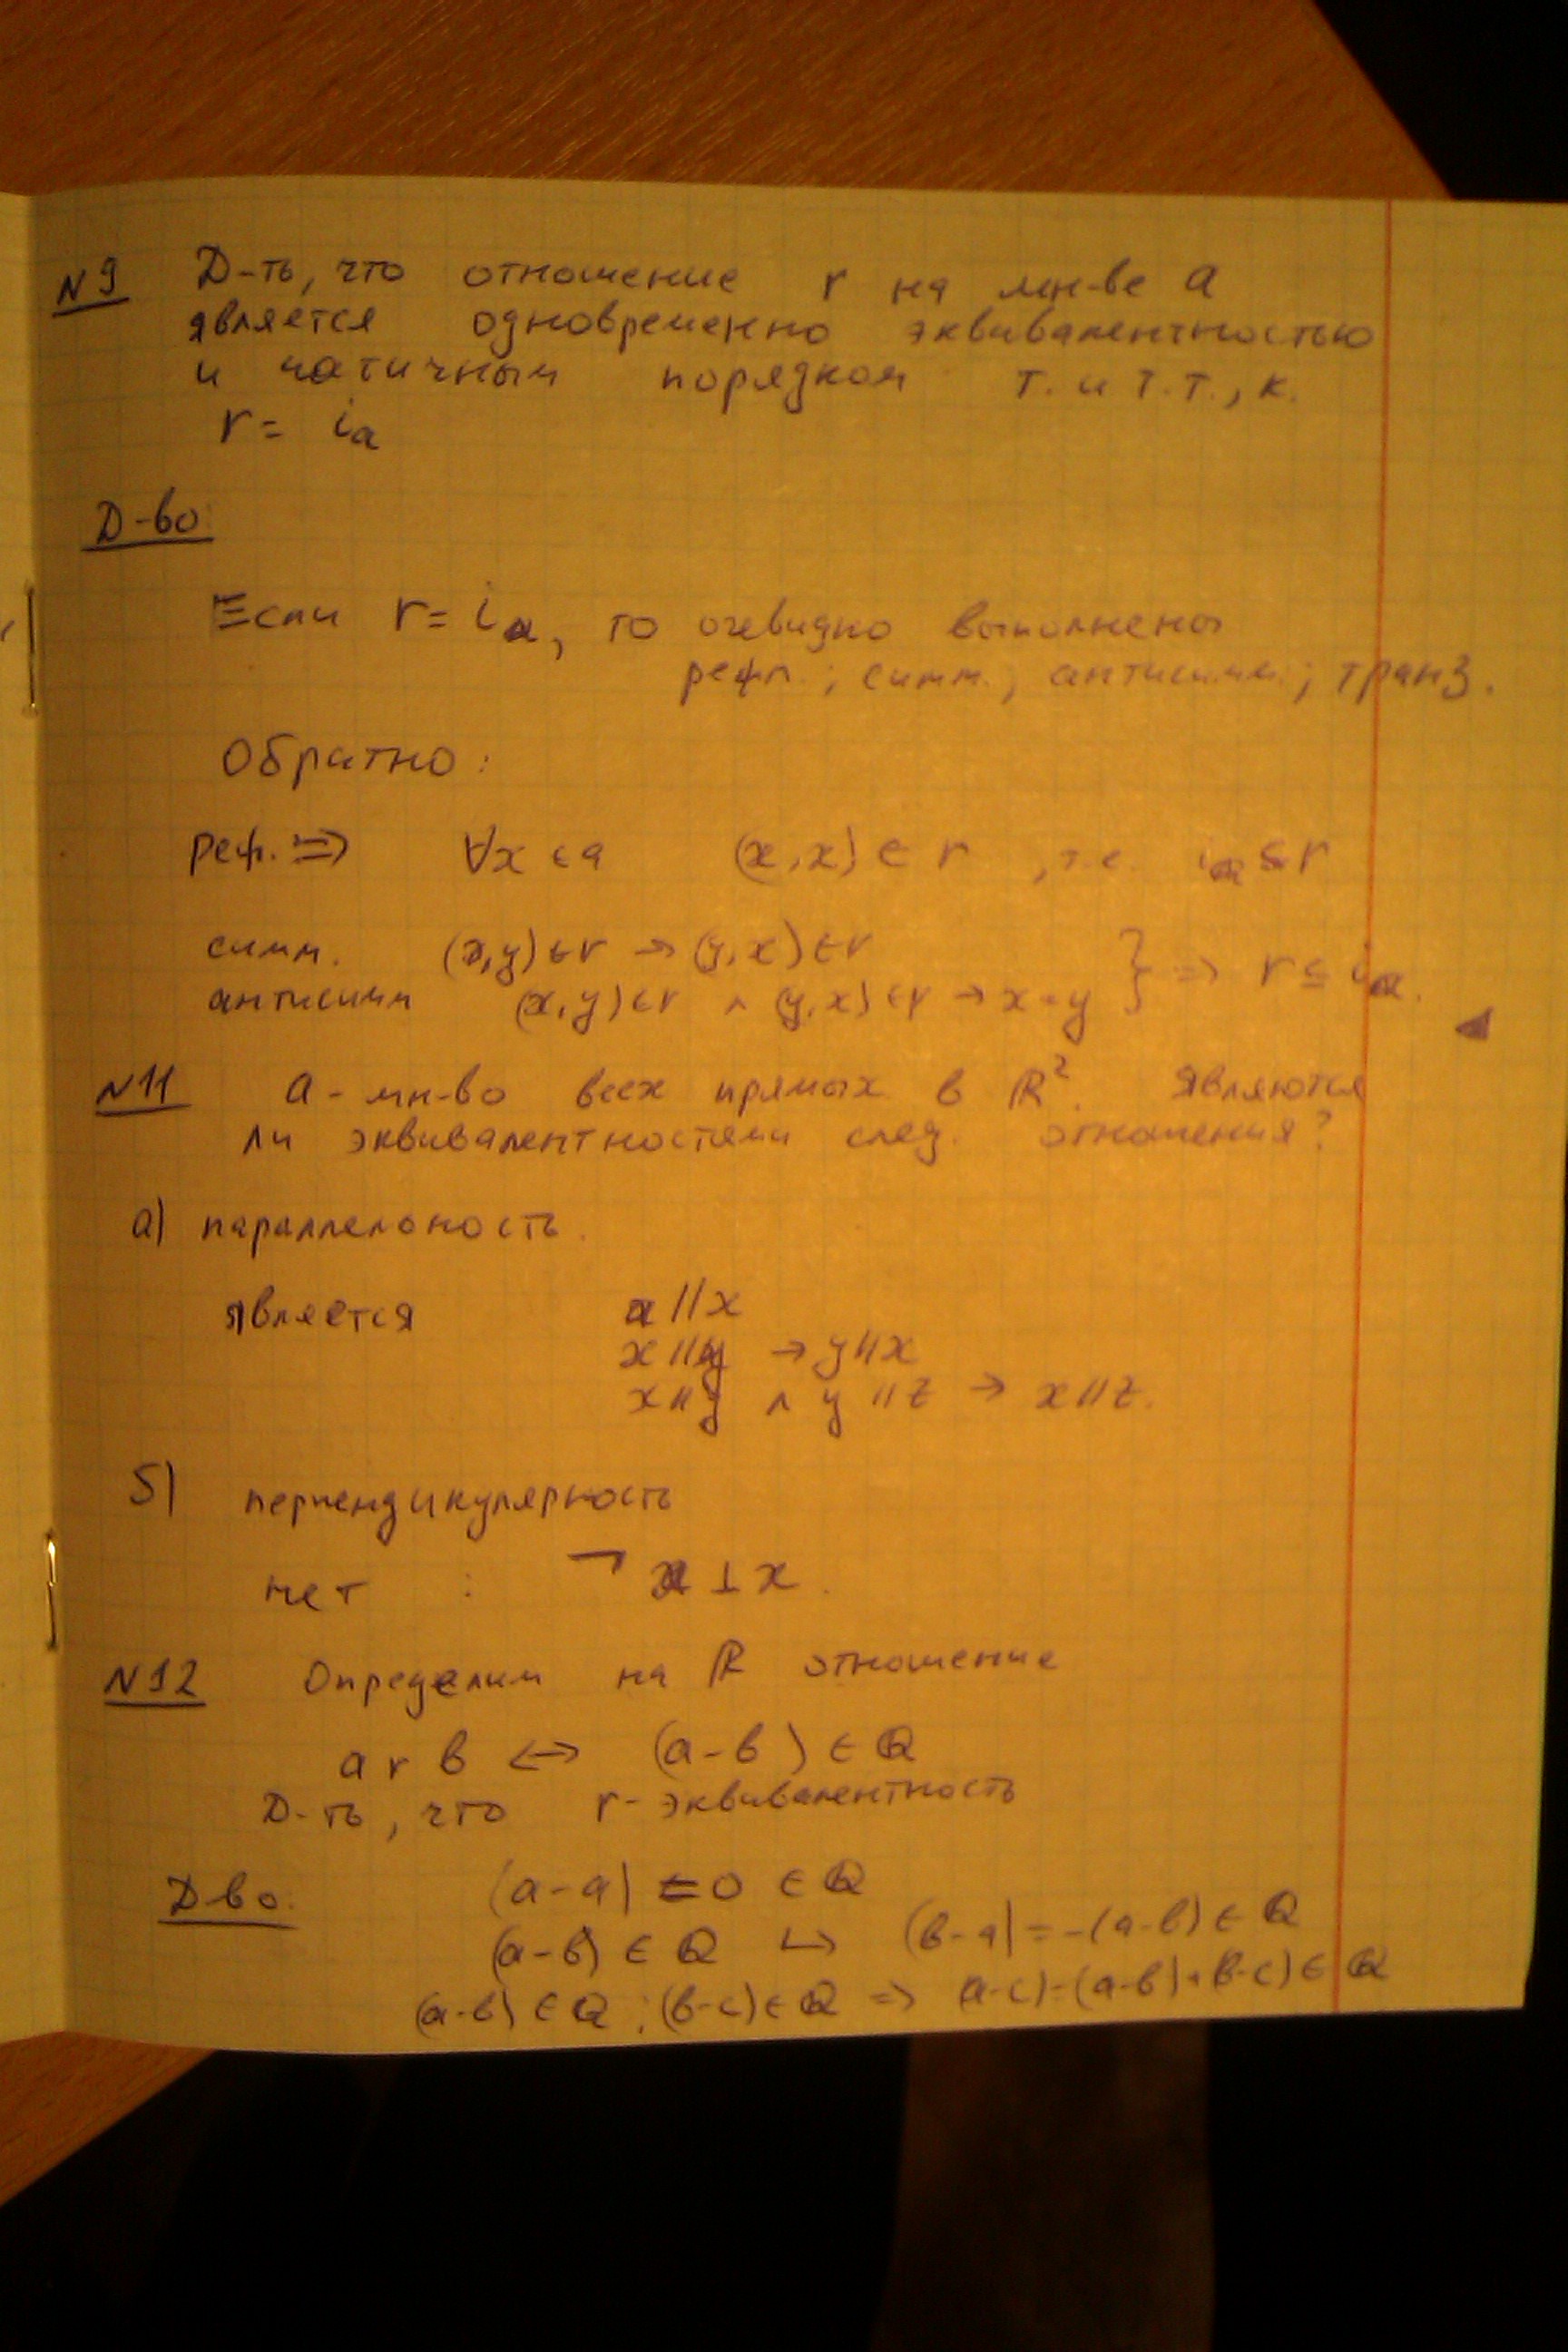 N9 Д-ть, что отношение r на мн-ве a
является одновременно эквивалентностью
и чатичным порядком т. и т.т., к.
r = i_a
Д-во
Если r = i_a, то очевидно выполнены
рефл.; симм.; антисимм.; транз.
Обратно:
реф. => ∀x ∈ a (x,x) ∈ r , т.е. i_a ⊆ r
симм. (x,y) ∈ r → (y,x) ∈ r
антисимм (x,y) ∈ r ∧ (y,x) ∈ r → x = y } => r ⊆ i_a.
N11 a - мн-во всех прямых в ℝ². Являются
ли эквивалентностями след. отношения?
а) параллельность.
является x // x
x // y → y // x
x // y ∧ y // z → x // z.
б) перпендикулярность
нет : ¬ x ⊥ x.
N12 Определим на ℝ отношение
a r b ↔ (a-b) ∈ ℚ
Д-ть, что r - эквивалентность
Д-во. (a-a) = 0 ∈ ℚ
(a-b) ∈ ℚ ↪ (b-a) = -(a-b) ∈ ℚ
(a-b) ∈ ℚ ; (b-c) ∈ ℚ => (a-c) = (a-b) + (b-c) ∈ ℚ